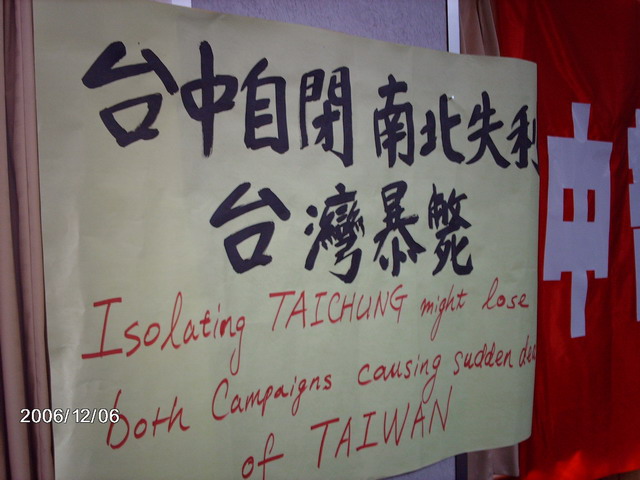 台中自閉 南北失利
台灣暴斃
Isolating TAICHUNG might lose
both Campaigns causing sudden dea
of TAIWAN
中
2006/12/06